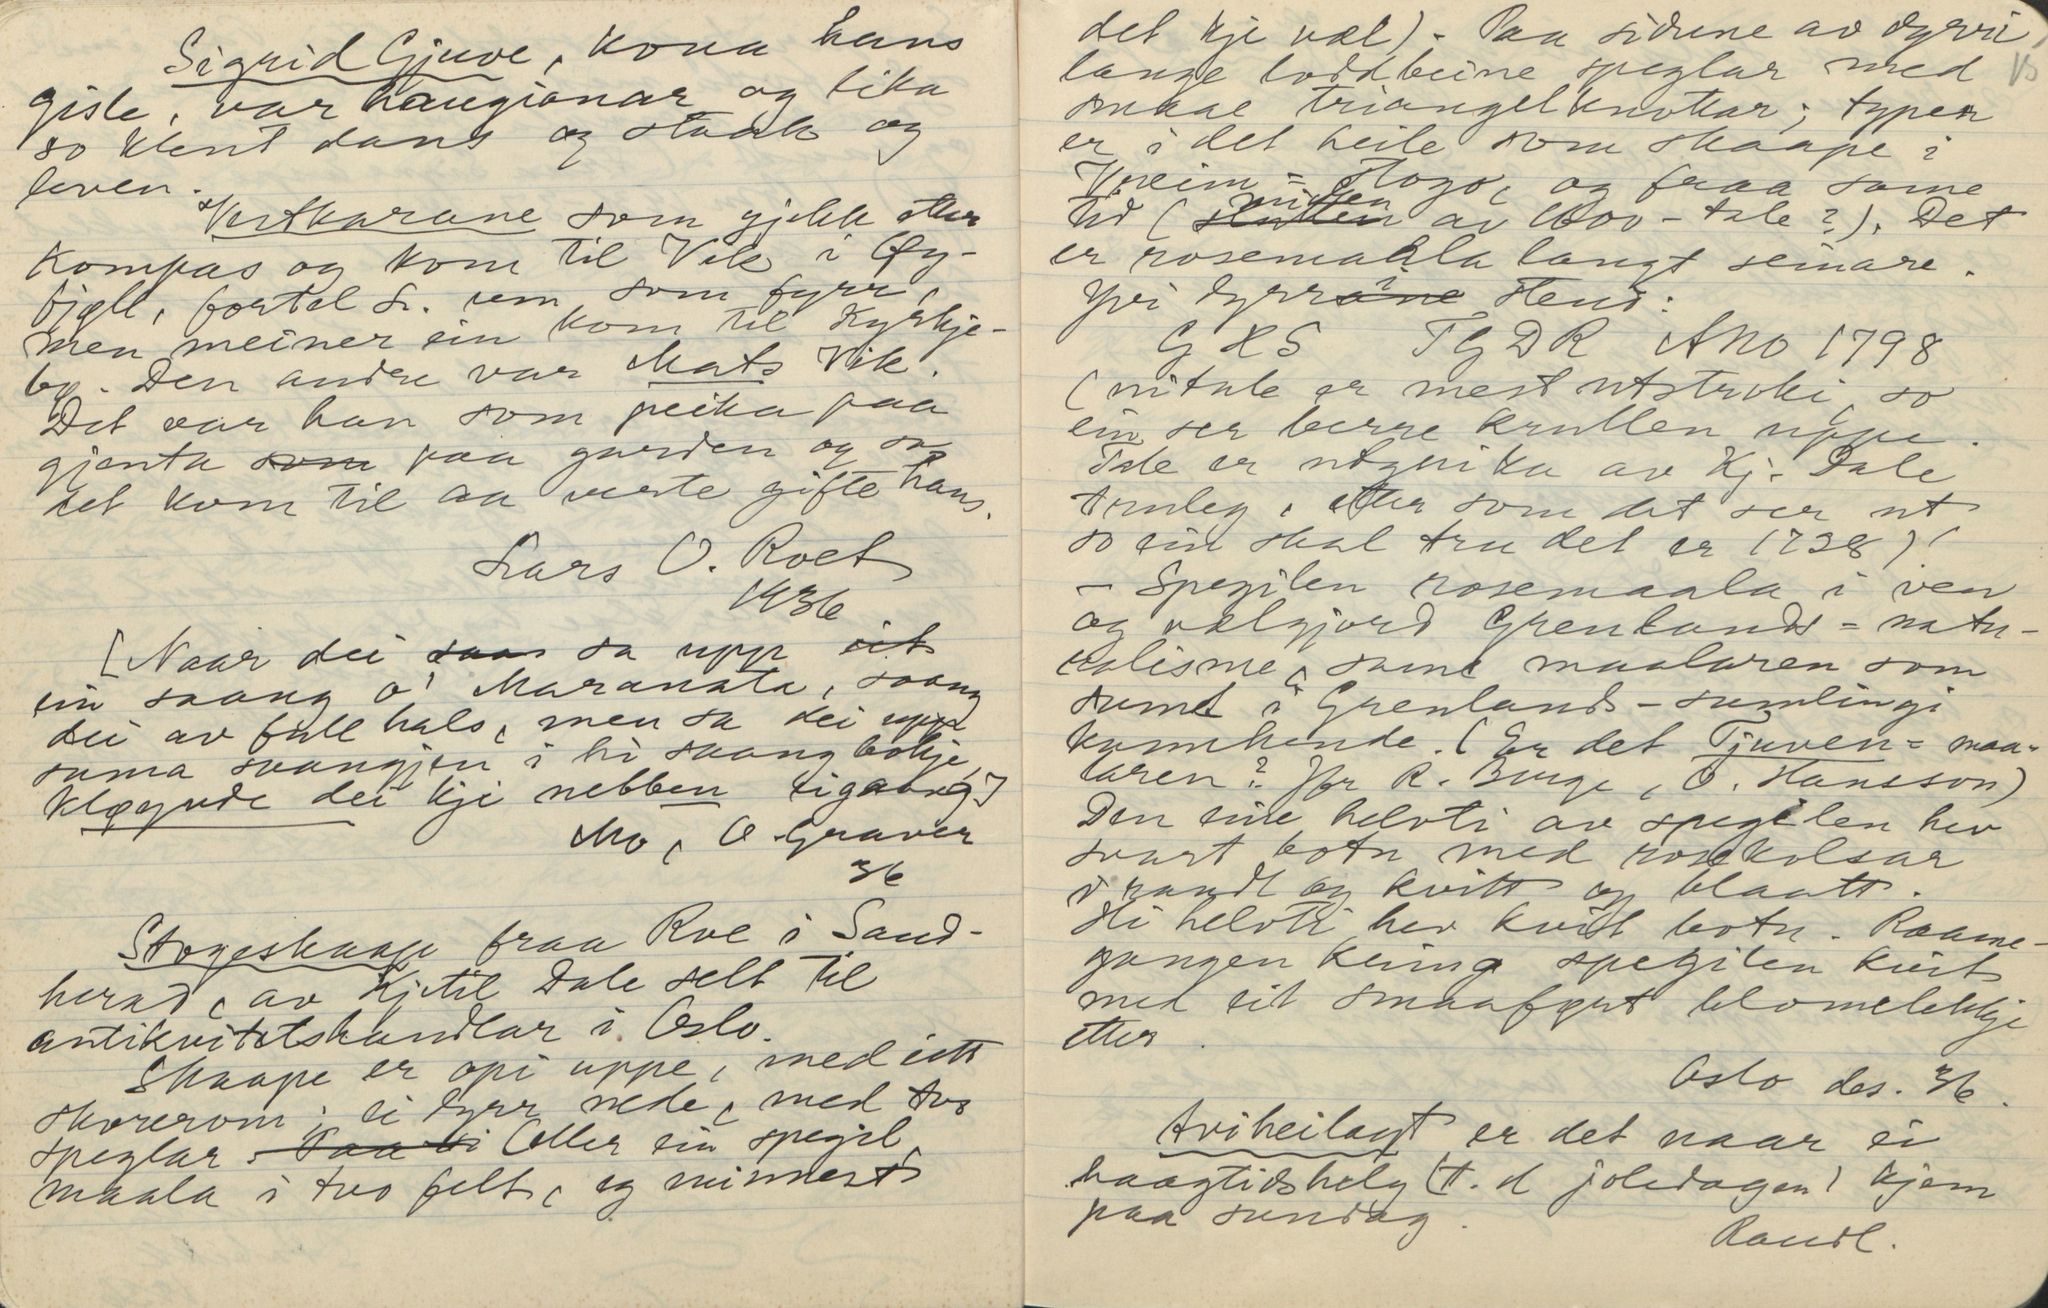 Sigrid Gjuve, kona hans
Gisle, var haugianar og lika
so klent dans og staak og
leven.
Vestkarane som gjekk etter
kompas og kom til Vik i Øy-
fjell, fortel L. um som fyrr,
men meiner ein kom til Kyrkje-
by. Den andre var Mats Vik.
Det var han som peika paa
gjenta som paa garden og sa
det kom til aa verte gifte hans.
Lars O. Roet
1936
[Naar dei saas sa upp eit
ein saang o' Maranata, saang
dei av full hals, men sa dei upp
suma svangjen i hi saangbokje,
kløyvde dei kje nebben eigaang]
Mo, O. Graver
36
Stogeskaap fraa Roe i Sand-
herad, av Kjetil Dale selt til
antikvitetshandlar i Oslo.
Skaape er opi uppe, med eitt
skorerom; ei dyrr nede, med two
speglar. Paa di (eller ein spegil,
maala i two felt, eg minnest
det kje væl). Paa sidune av dyrri
lange loddbeine speglar med
smaae triangelknottar; typen
er i det heile som skaape i
Vreim-stogo, og fraa same
tid (slutten midten av 1600-tale?). Det
er rosemaala langt seinare.
Yvi dyrrane i stend:
G K S TGDR ANO 1798
(nitale er mest utstroki so
ein ser berre krullen uppe.
Tale er utgnika av Kj. Dale
truleg, etter som det ser ut
so ein skal tru det er 1738)!
- Spegilen rosemaala i ven
og velgjord Grenlands-natu-
ralisme, same maalaren som
sumt i Grenlands-samlingi
kannhende. (Er det Tjuven-maa-
laren? Jfr R. Berge, O. Hansson)
Den eine helvti av spegilen hev
svart botn med rosekolsar
i raudt og kvitt og blaatt.
Hi helvti hev kvit botn. Raame-
gangen kring spegilen kvit
med eit smaaført blomelekkje
etter.
Oslo des. 36.
Tviheilagt er det naar ei
haagtidshelg (t. d joledagen) kjem
paa sundag.
Raudl.